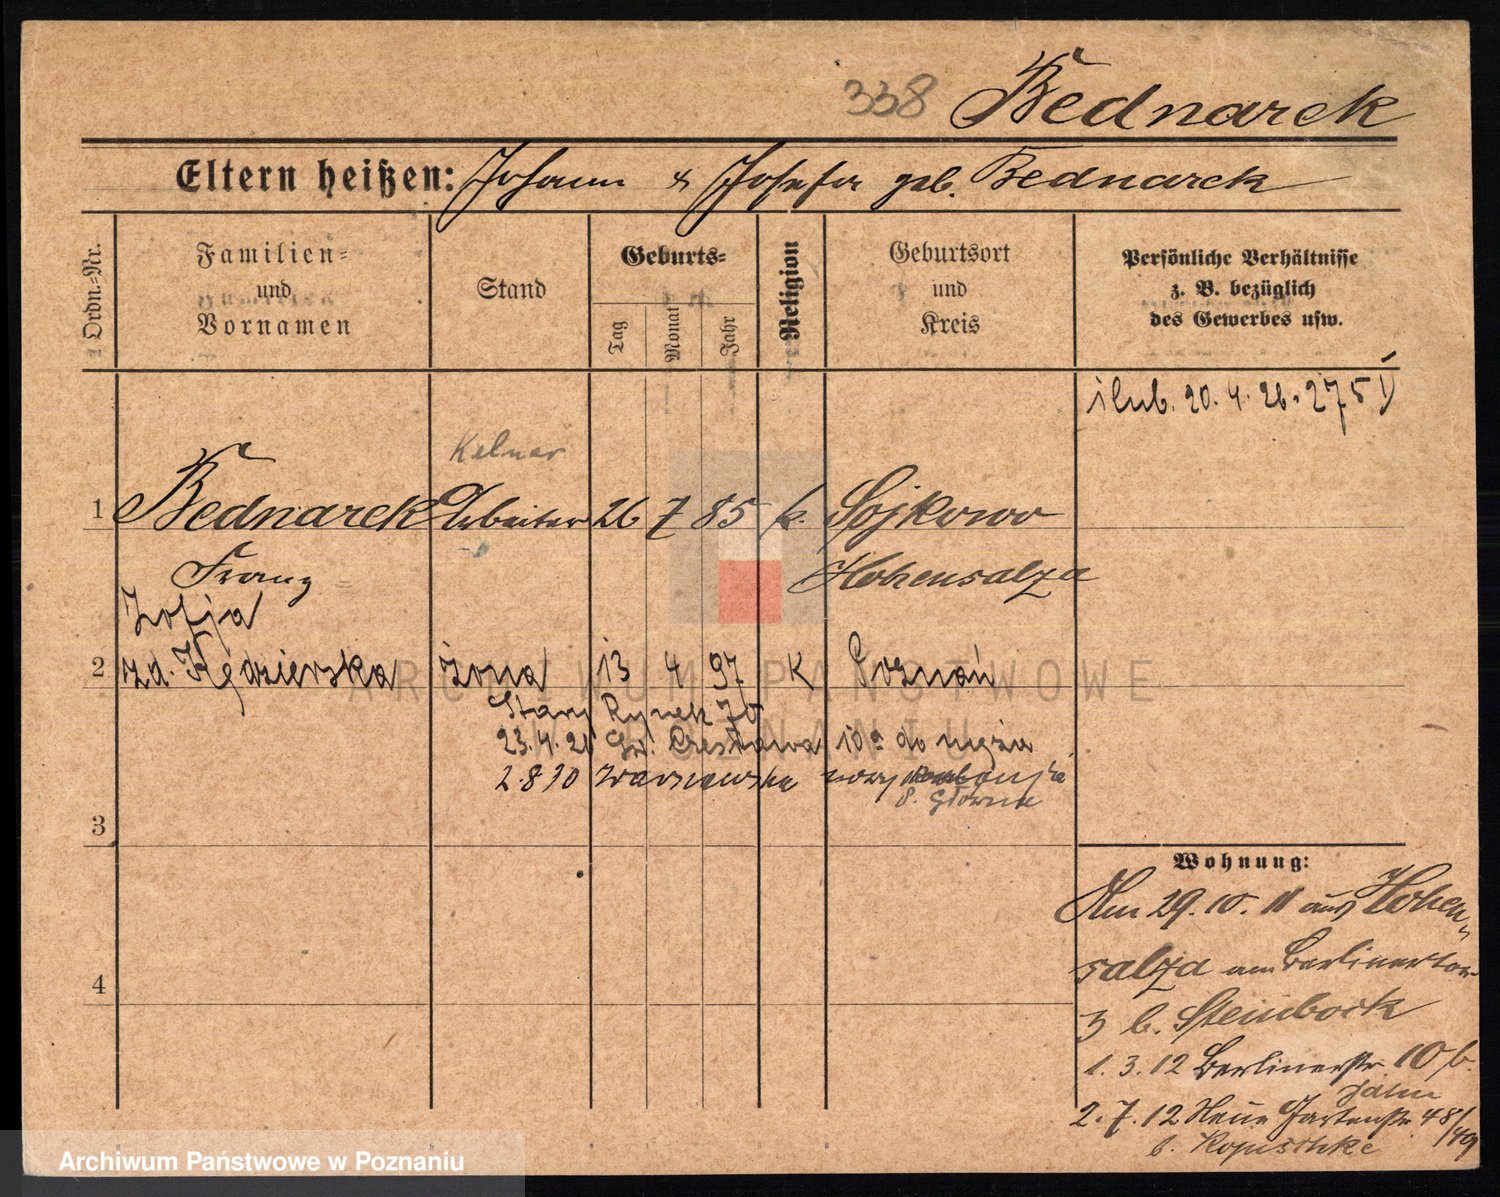 338 Bednarek
Eltern heißen: Johann & Josefa geb. Bednarek
Ordn.-Nr.
Familien-
und
Vornamen
Stand
Geburts-
Tag
Monat
Jahr
Religion
Geburtsort
und
Kreis
Persönliche Verhältnisse
z. B. bezüglich
des Gewerbes usw.
ślub. 20. 4. 26. 275
Kelner
1 Bednarek Arbeiter 26 7 85 k. Sojkowo
Franz Hohensalza
Zofja
2 zd. Kędzierska żona 13 4 97 K Poznań
Stary Rynek 76
23.4.21 Św. Czesława 10a do męża
2.8.30 Warszawska
8. Główna
3
4
Wohnung:
Am 29. 10. 11 aus Hohen-
salza am Berlinertor
3 b. Steinbock
1. 3. 12 Berlinerstr. 10 b.
Jahn
2. 7. 12 Neue Gartenstr. 48/49
b. Kopischke
ARCHIWUM PAŃSTWOWE
W POZNANIU
Archiwum Państwowe w Poznaniu